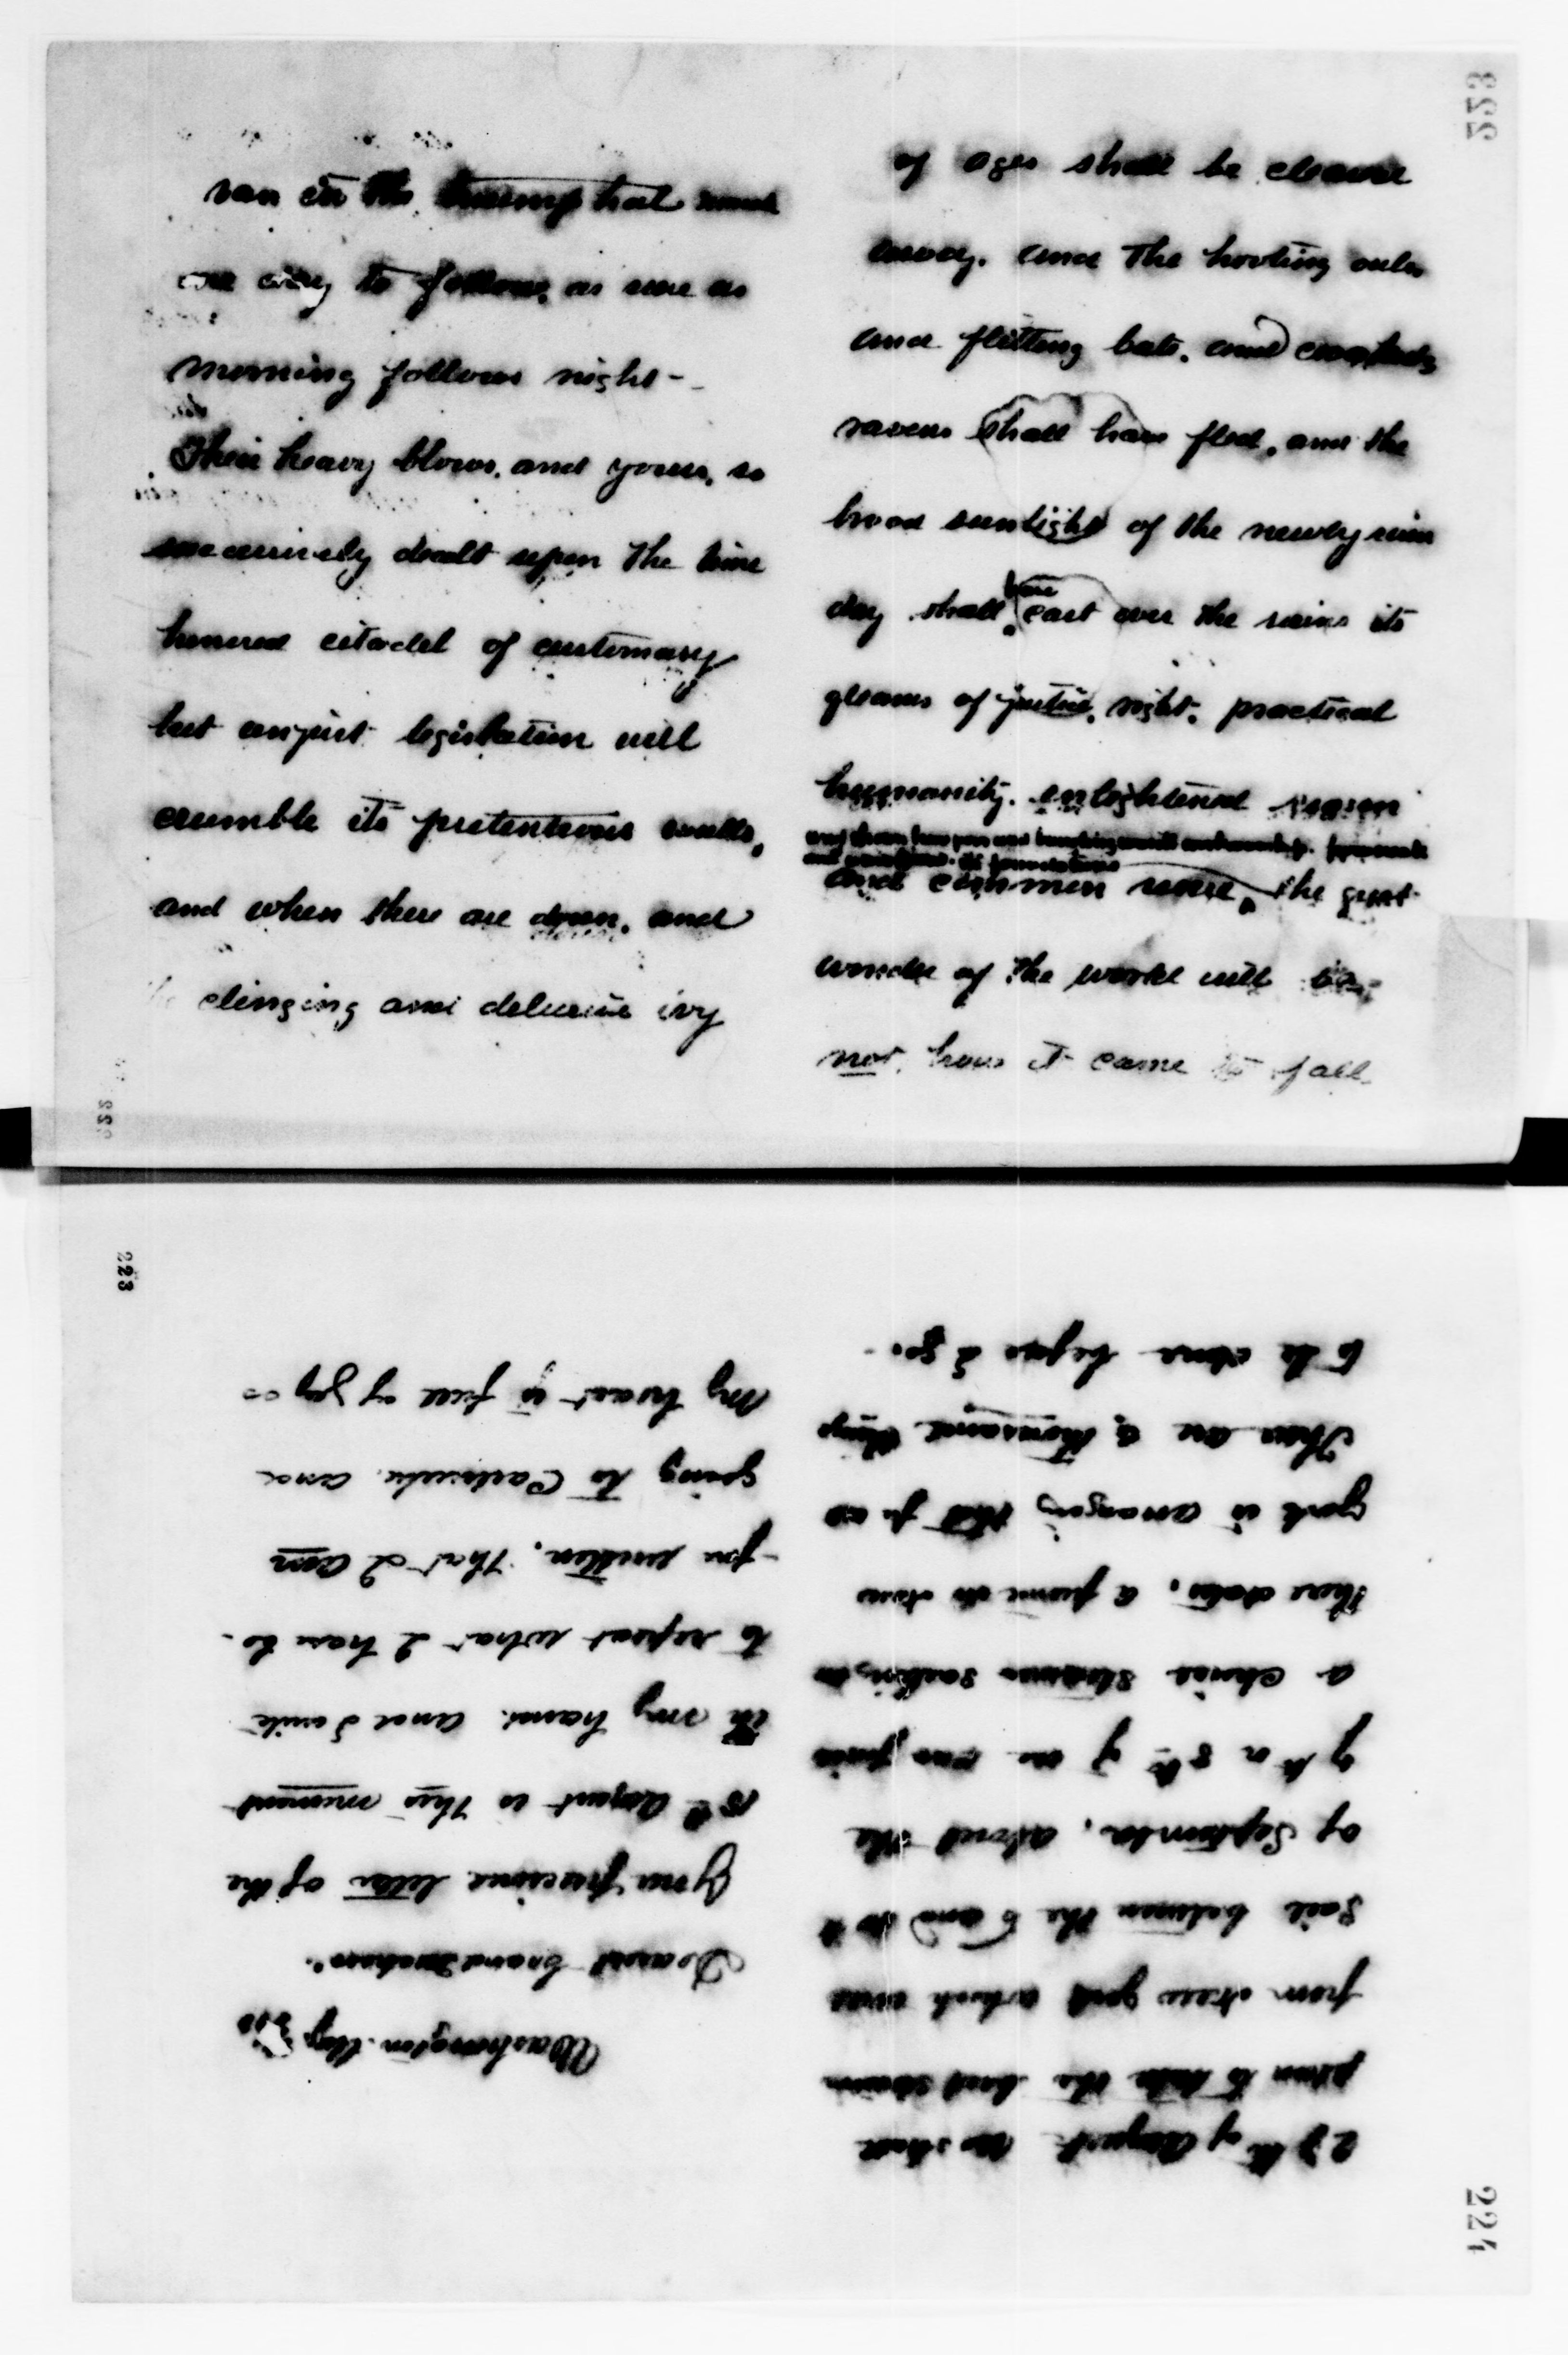 223
van in the triumph that must
one day to follow, as sure as
morning follows night--
Their heavy blows, and yours, so
successively dealt upon the time
honored citadel of customary
but unjust legislation will
crumble its pretentious walls,
and when these are down, and
clinging and delusive ivy
of ages shall be cleared
away, and the hooting owls
and flitting bats, and
ravens shall have fled, and the
broad sunlight of the newly risen
day shall have cast over the ruins its
gleams of justice, right, practical
humanity, enlightened reason
and common sense, the great
wonder of the world will be,
not, how it came to fall,
223
Washington. Aug.
Dearest Grand
Your precious letter of the
18th August is this moment
in my hand. and I write
to repeat what I have be-
fore written, that I am
going to Carlsruhe, and
My heart is full of joy
27th of August. We shall
from New York which will
sail between the 5 and 10th
of September, about the
7th or 8th of
a choice steamer sailing on
these dates. a friend in New
York is arranging that for us
There are a thousand things
to be done before I go.
224